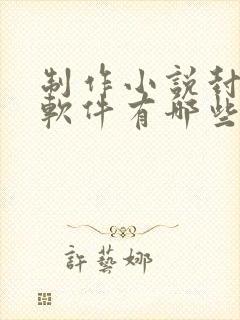 制作小說封
軟件有哪些
許藝娜